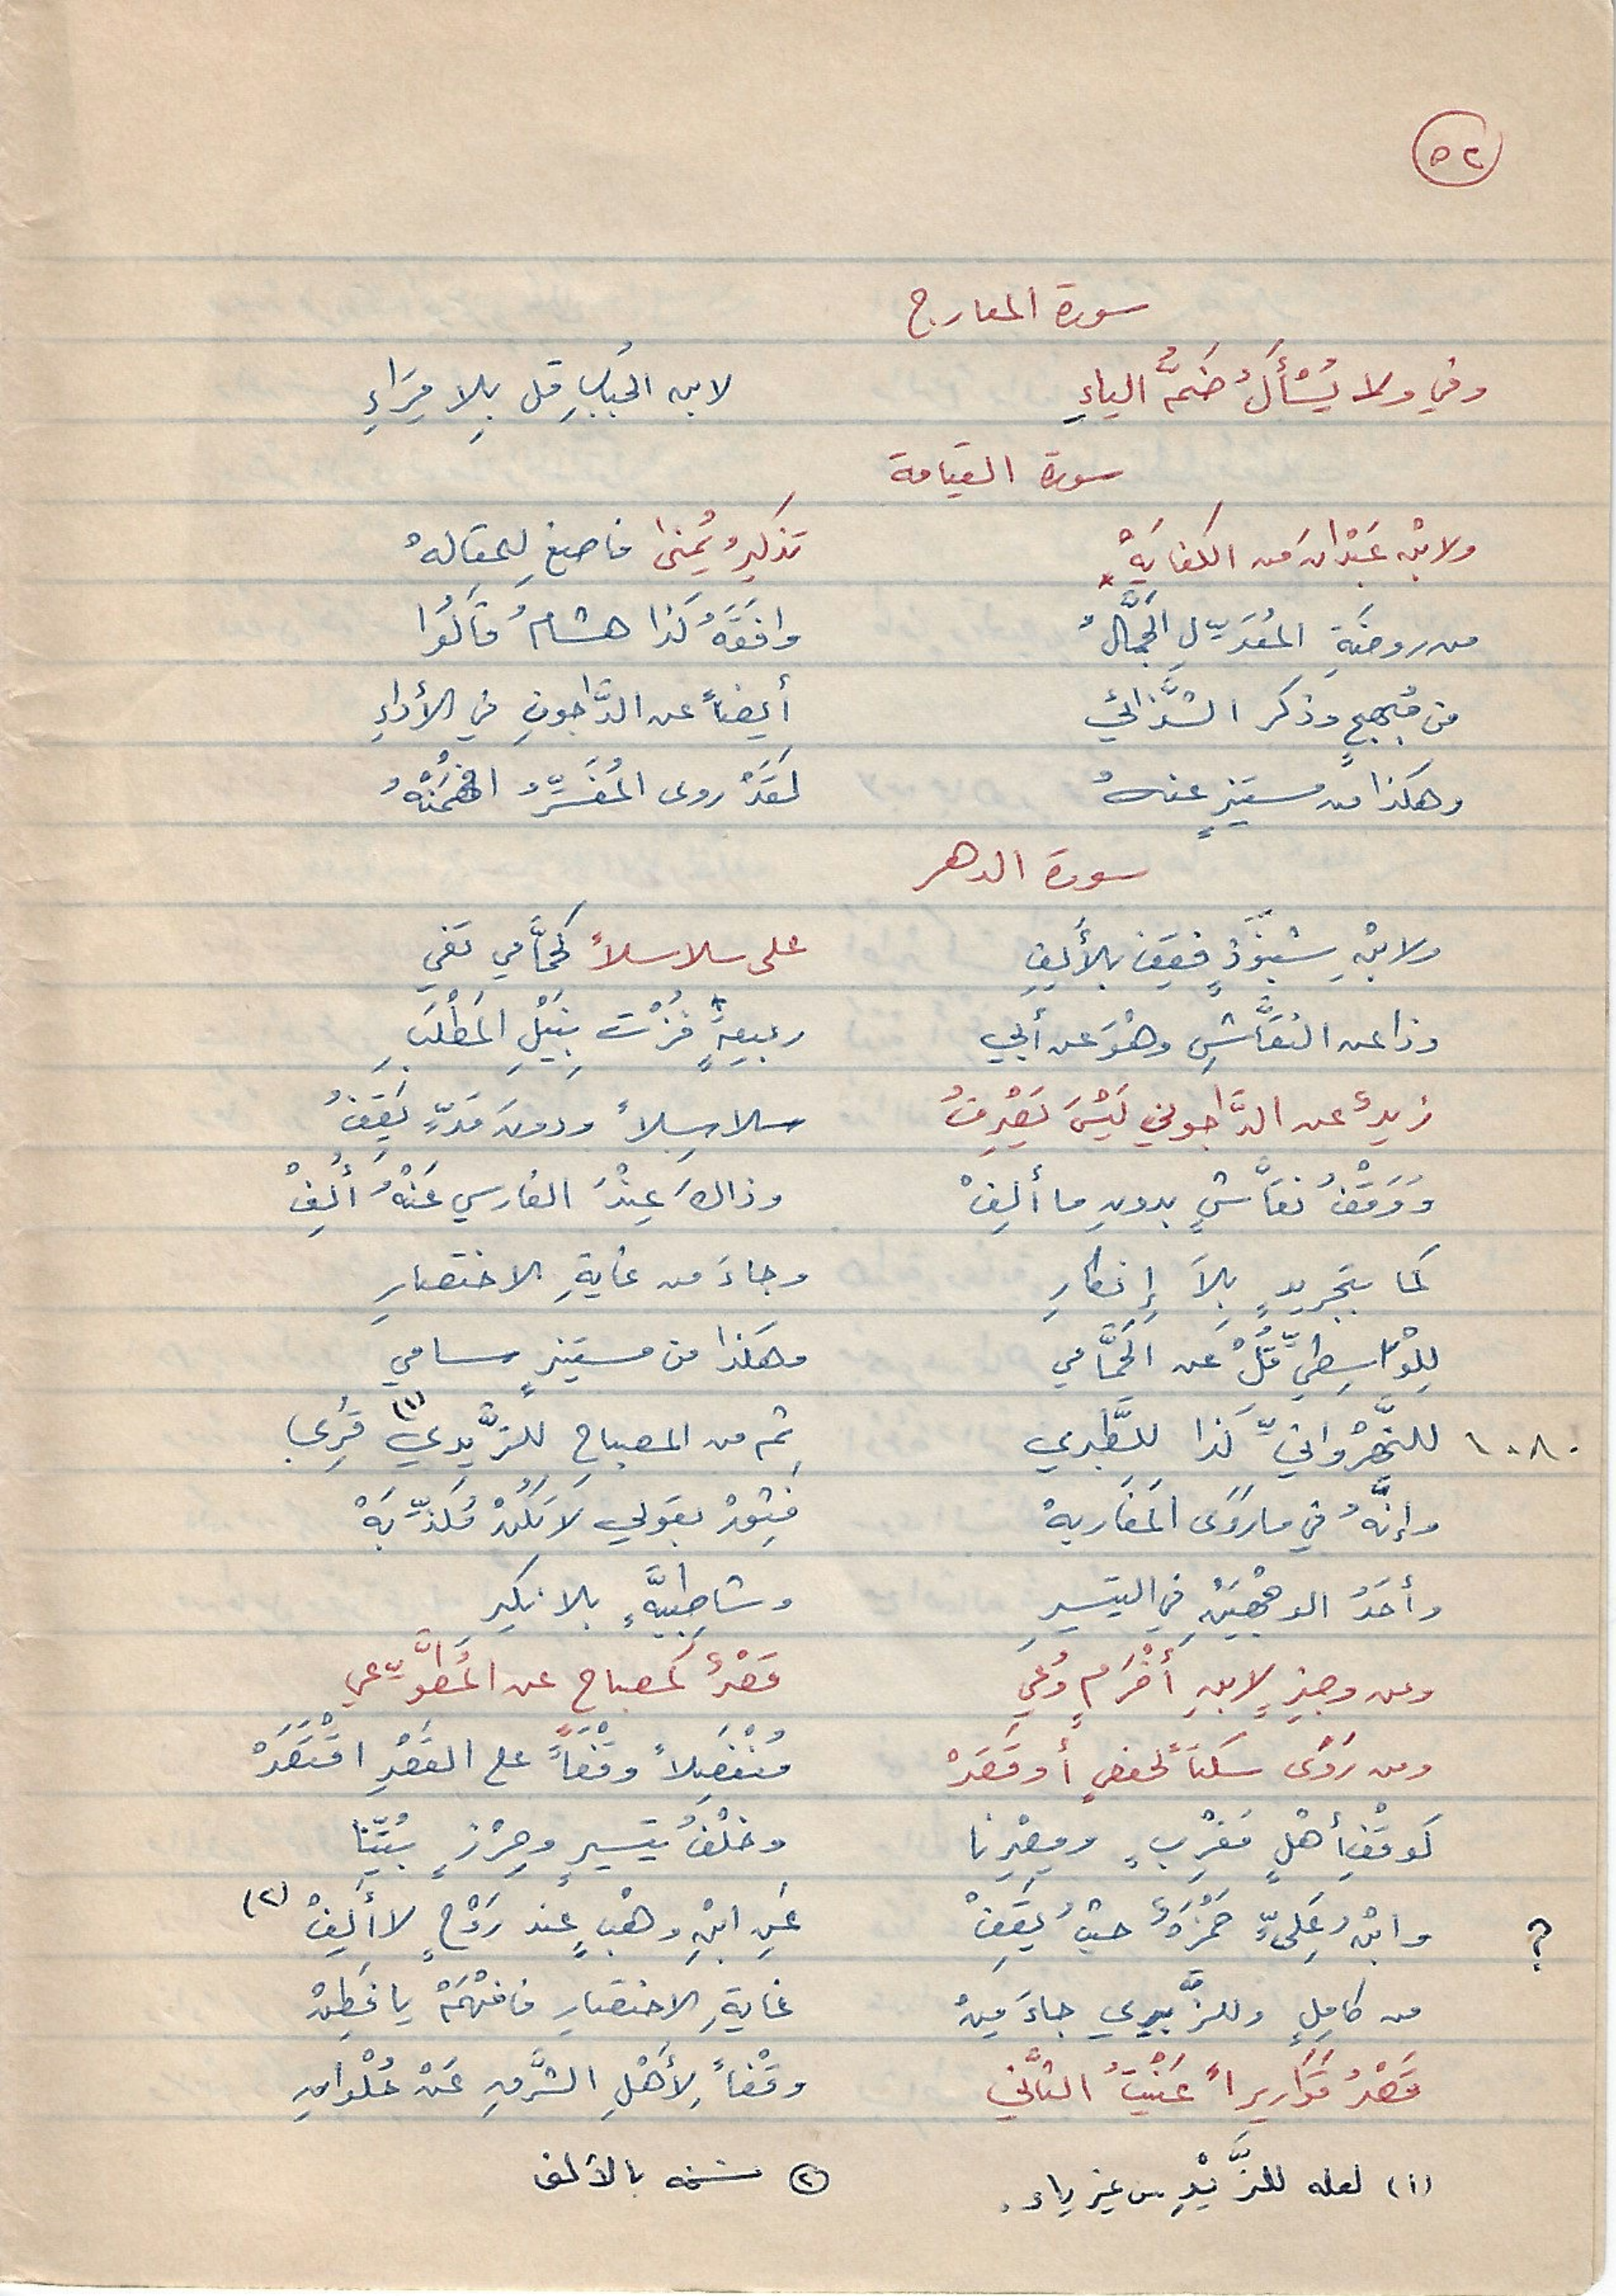 ٥٢
سورة المعارج
وفي ولا يُسْأَلُ ضَمُّ الياءِ لابن الحُبَابِ قل بِلا مِرَاءِ
سورة القيامة
ولابْنِ عَبْدَانَ من الكفايَهْ تذكيرُ يُمنى فاصغِ للمقالهْ
من روضَةِ المُعَدِّلِ الجَمَّالُ وافَقَهُ كَذَا هشامُ قَالُوا
من مُبهجٍ وذكر الشَّذائي أيضاً عن الدَّاجونِ في الأداءِ
وهكذا من مستنيرٍ عنهُ لَقَدْ روى المُفَسِّرُ افْهَمَنْهُ
سورة الدهر
ولابْنِ شَنَبُوذٍ فَقِفْ بالأَلِفِ على سلاسلاً كَحَمَّامي تفي
وذا عن النَّقَّاشِ وهْوَ عن أبي ربيعةٍ فُزْتَ بِنَيْلِ المَطْلَبِ
زيدٌ عن الدَّاجوني لَيْسَ يَصْرِفُ سلاسِلاً ودونَ مَدٍّ يَقِفُ
وَوَقْفُ نَقَّاشٍ بدونِ ما أَلِفْ وذاكَ عِنْدَ الفارسي عَنْهُ أُلِفْ
كما بتجريدٍ بِلاَ إِنكارِ وجاءَ من غايةِ الاختصارِ
لِلْوَاسِطِيِّ قُلْ عن الحَمَّامي وهكذا من مستنيرٍ سامي
١٠٨٠ للنَّهْرَوانيِّ كذا للطَّبري ثم من المصباحِ للزَّيدي (١) قُرِي
وإنَّهُ في ما رَوَى المَغَاربهْ فَثِقْ بقولي لاَ تَكُنْ مُكَذِّبَهْ
وأحَدُ الوجْهَيْنِ في التيسيرِ وشاطِبيَّةٍ بلا نكيرِ
وعن وجيزٍ لابنِ أخْرَمٍ وُعي قَصْرٌ كمصباحٍ عن المُطَّوِّعي
ومن رَوَى سكتاً لحفصٍ أو قَصَرْ مُنْفَصِلاً وقْفاً على القَصْرِ اقْتَصَرْ
كَوقْفِ أهْلِ مَغْرِبٍ ومِصْرِنا وخُلْفُ تيسيرٍ وحِرْزٍ بُيِّنا
؟ وابْنُ عَلِيٍّ حَمْزَةٌ حيثُ يَقِفْ عَنِ ابْنِ وهْبٍ عند رَوْحٍ لا أَلِفْ (٢)
من كامِلٍ وللزُّبيري جاءَ مِنْ غايةِ الاختصارِ فافْهَمْ يا فَطِنْ
قَصْرُ قَوَاريراً عَنَيْتُ الثَّاني وقْفاً لأَهْلِ الشَّرقِ عَنْ حُلْوانِ
(١) لعله للزَّيْدِ من غير ياء.
(٢) نسخة بالألف